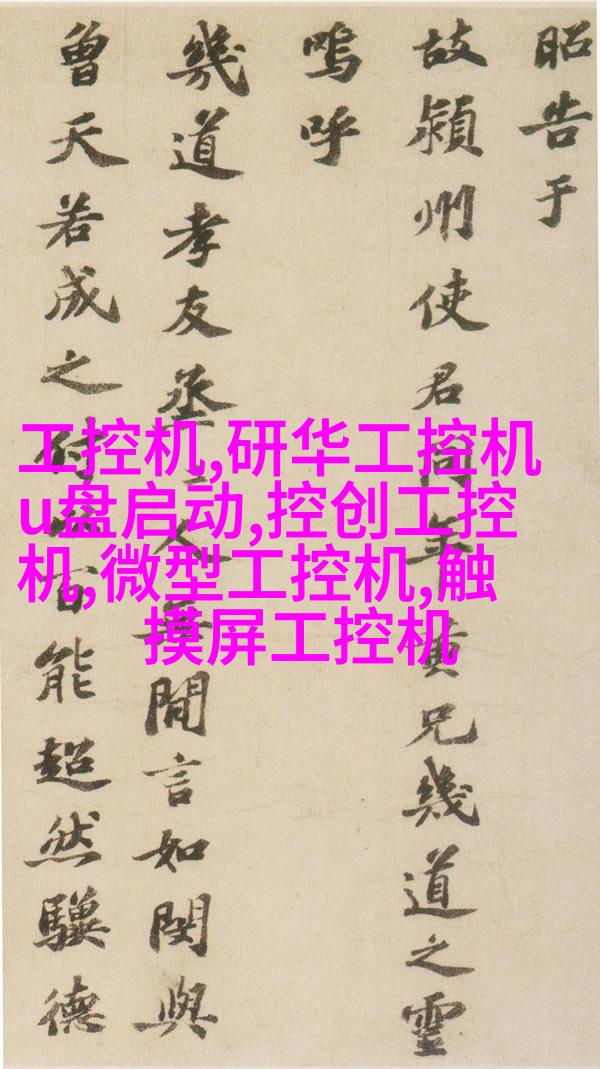 昭告于
故潁州使君同年黄兄幾道之靈
嗚呼
幾道孝友烝〻人無間言如閔與
曾天若成之付以百能超然驥德
工控机,研华工控机
u盘启动,控创工控
机,微型工控机,触
摸屏工控机